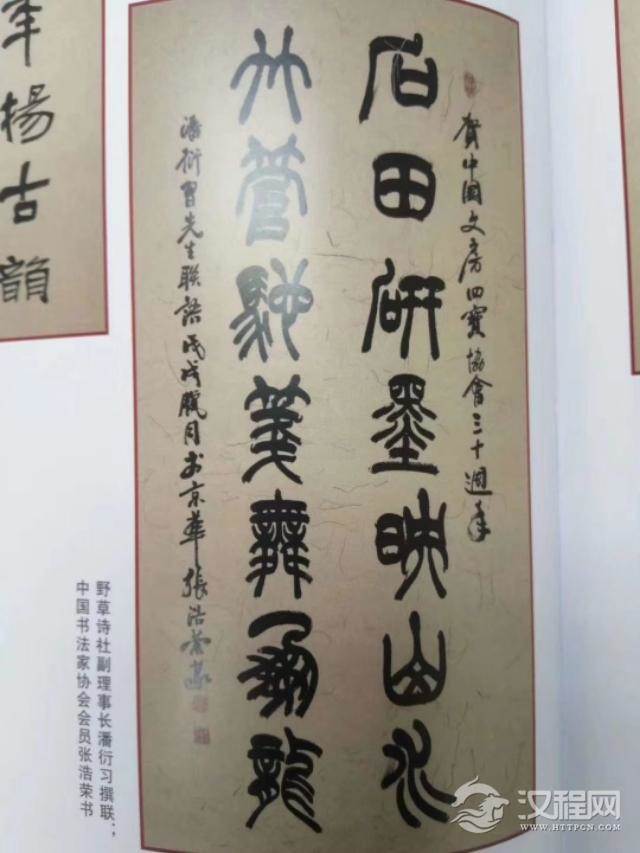 賀中國文房四寶協會三十週年
石田研墨映山水
竹管馳箋舞鳳龍
潘衍習先生聯語戊戌臘月於京華張浩榮篆
年揚古韻
野草诗社副理事长潘衍习撰联；
中国书法家协会会员张浩荣书
汉程网
WWW.HTTPCN.COM